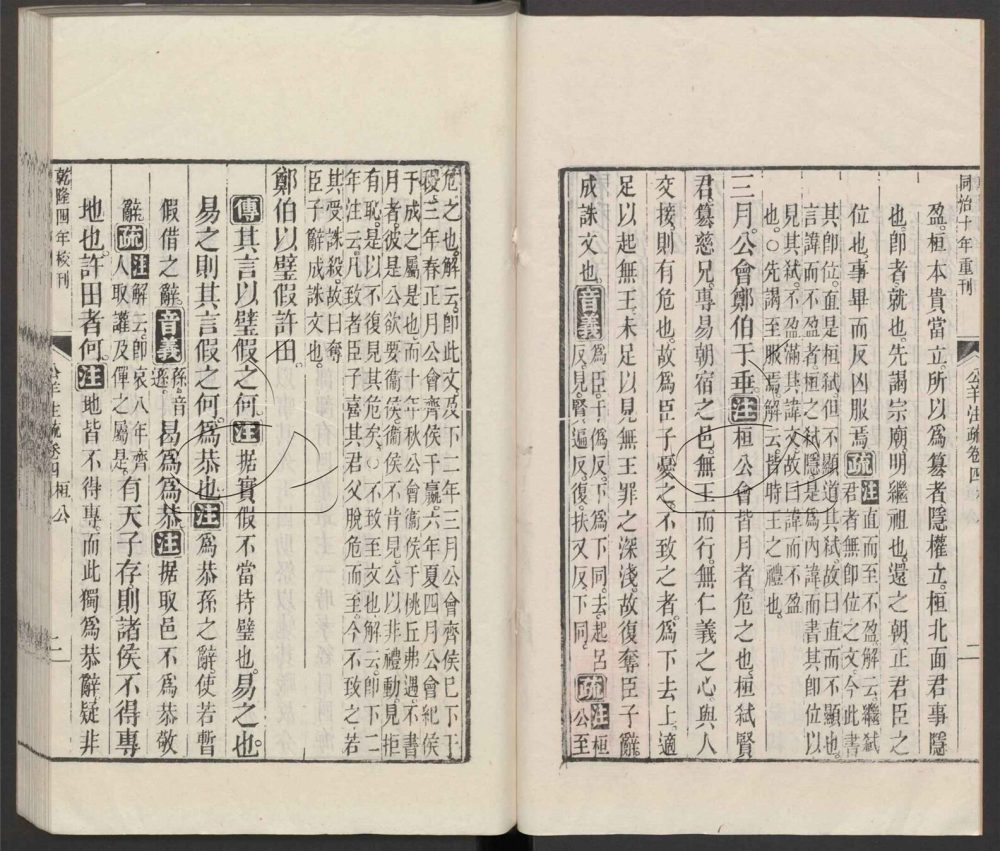 同治十年重刊
公羊注疏卷四
二
盈桓本貴當立所以爲篡者隱權立桓北面君事隱
也卽者就也先謁宗廟明繼祖也還之朝正君臣之
位也事畢而反凶服焉疏注直而至不盈解云繼弑
君者無卽位之文今此書
其卽位直是桓弑但不顯道其弑故曰直而不顯也
言諱而不盈者桓之弑隱是爲內諱而書其卽位以
見其弑不盈滿其諱文故曰諱而不盈
也○先謁至服焉解云皆時王之禮也
三月公會鄭伯于垂注桓公會皆月者危之也桓弑賢
君篡慈兄專易朝宿之邑無王而行無仁義之心與人
交接則有危也故爲臣子憂之不致之者爲下去上適
足以起無王未足以見無王罪之深淺故復奪臣子辭
成誅文也音義爲臣于僞反下爲下同去起呂
反見賢遍反復扶又反下同疏注桓
公至
危之也解云卽此文及下二年三月公會齊侯巳下于
稷三年春正月公會齊侯于嬴六年夏四月公會紀侯
于成之屬是也而十年秋公會衞侯于桃丘弗遇不書
月者彼是公欲要衞侯衞侯不肯見公以非禮動見拒
有恥是以不復見其危矣○不致至文也解云卽下二
年注云凡致者臣子喜其君父脫危而至今不致之若
其受誅殺故曰奪
臣子辭成誅文也
鄭伯以璧假許田
傳其言以璧假之何注据實假不當持璧也易之也
易之則其言假之何爲恭也注爲恭孫之辭使若暫
假借之辭音義孫音
遜曷爲爲恭注据取邑不爲恭敬
辭疏注解云卽哀八年齊
人取讙及僤之屬是有天子存則諸侯不得專
地也許田者何注地皆不得專而此獨爲恭辭疑非
乾隆四年校刊
公羊注疏卷四
桓公
二